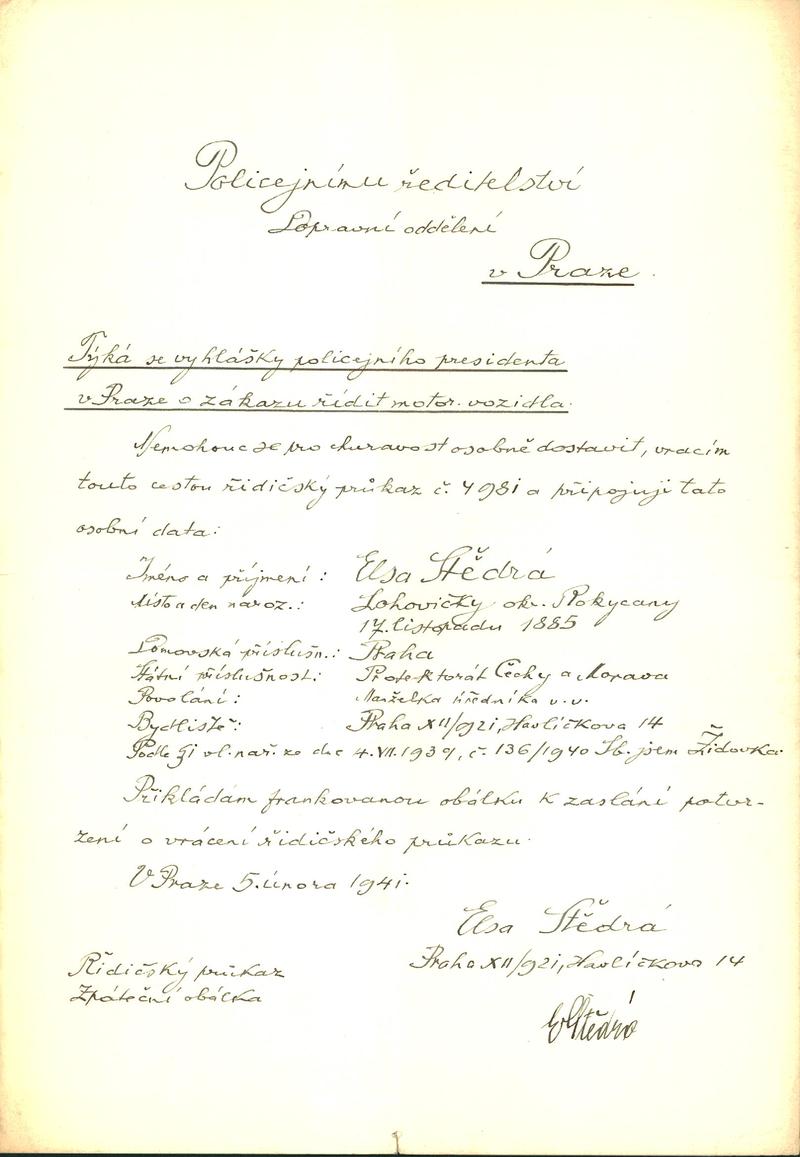 Policejnímu ředitelství
Dopravní oddělení
v Praze.
Týká se vyhlášky policejního presidenta
v Praze o zákazu řídit motor. vozidla.
Nemohouc se pro churavost osobně dostavit, vracím
touto cestou řidičský průkaz č. 4981 a připojuji tato
osobní data:
Jméno a příjmení: Elsa Štědrá
Místo a den naroz.: Lohovičky okr. Rokycany
17. listopadu 1885
Domovská příslušn.: Praha
Státní příslušnost: Protektorát Čechy a Morava
Povolání: Manželka úředníka v.v.
Bydliště: Praha XII/921, Havlíčkova 14
Podle §1 vl. nař. ze dne 4.VII.1939, č. 136/1940 Sb. jsem Židovka.
Přikládám frankovanou obálku k zaslání potvr-
zení o vrácení řidičského průkazu.
V Praze 5. února 1941.
Elsa Štědrá
Praha XII/921, Havlíčkova 14
Řidičský průkaz
Zpáteční obálka
EŠtědrá